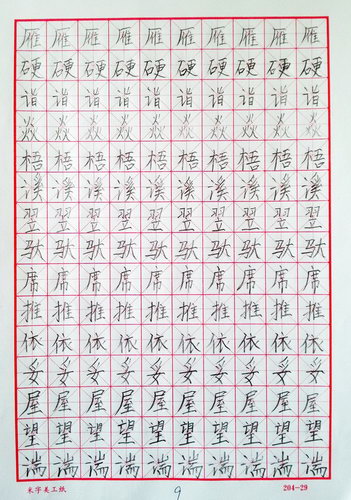 雁雁雁雁雁雁雁雁雁雁
硬硬硬硬硬硬硬硬硬硬
诣诣诣诣诣诣诣诣诣诣
焱焱焱焱焱焱焱焱焱焱
梧梧梧梧梧梧梧梧梧梧
溪溪溪溪溪溪溪溪溪溪
翌翌翌翌翌翌翌翌翌翌
驮驮驮驮驮驮驮驮驮驮
席席席席席席席席席席
推推推推推推推推推推
依依依依依依依依依依
妥妥妥妥妥妥妥妥妥妥
屋屋屋屋屋屋屋屋屋屋
望望望望望望望望望望
湍湍湍湍湍湍湍湍湍湍
米字美工纸 9 204-29